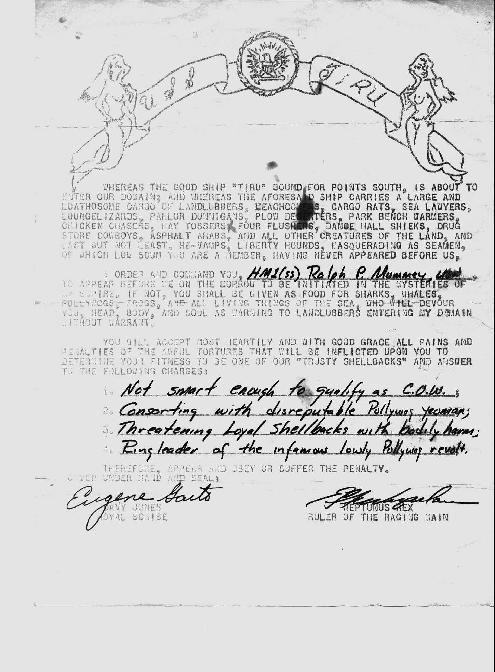 USS
TIRU
WHEREAS THE GOOD SHIP "TIRU" BOUND FOR POINTS SOUTH, IS ABOUT TO
ENTER OUR DOMAIN; AND WHEREAS THE AFORESAID SHIP CARRIES A LARGE AND
LOATHSOME CARGO OF LANDLUBBERS, BEACHCOMBERS, CARGO RATS, SEA LAWYERS,
LOUNGELIZARDS, PARLOR DUNNIGANS, PLOW DESERTERS, PARK BENCH WARMERS,
CHICKEN CHASERS, HAY TOSSERS, FOUR FLUSHERS, DANCE HALL SHIEKS, DRUG
STORE COWBOYS, ASPHALT ARABS, AND ALL OTHER CREATURES OF THE LAND, AND
LAST BUT NOT LEAST, HE-VAMPS, LIBERTY HOUNDS, MASQUERADING AS SEAMEN,
OF WHICH LOW SCUM YOU ARE A MEMBER, HAVING NEVER APPEARED BEFORE US,
I ORDER AND COMMAND YOU, HM1(SS) Ralph P. Mummey, USN
TO APPEAR BEFORE ME ON THE MORROW TO BE INITIATED IN THE MYSTERIES OF
MY EMPIRE. IF NOT, YOU SHALL BE GIVEN AS FOOD FOR SHARKS, WHALES,
POLLYWOGS, FROGS, AND ALL LIVING THINGS OF THE SEA, WHO WILL DEVOUR
YOU, HEAD, BODY, AND SOUL AS WARNING TO LANDLUBBERS ENTERING MY DOMAIN
WITHOUT WARRANT.
YOU WILL ACCEPT MOST HEARTILY AND WITH GOOD GRACE ALL PAINS AND
PENALTIES OF THE AWFUL TORTURES THAT WILL BE INFLICTED UPON YOU TO
DETERMINE YOUR FITNESS TO BE ONE OF OUR "TRUSTY SHELLBACKS" AND ANSWER
TO THE FOLLOWING CHARGES:
1. Not smart enough to qualify as C.O.W.;
2. Consorting with disreputable Pollywog yeoman;
3. Threatening Loyal Shellbacks with bodily harm;
4. Ringleader of the infamous lowly Pollywog revolt.
THEREFORE, APPEAR AND OBEY OR SUFFER THE PENALTY.
GIVEN UNDER HAND AND SEAL;
Eugene Gaito
DAVY JONES
ROYAL SCRIBE
NEPTUNUS REX
RULER OF THE RAGING MAIN